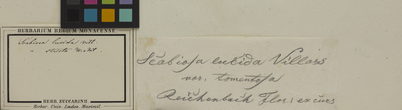 HERBARIUM REGIUM MONACENSE.
Scabiosa lucida Vill.
" stricta W. Kit
HERB. ZUCCARINII
Scabiosa lucida Villars
var. tomentosa
Reichenbach Flor. excurs